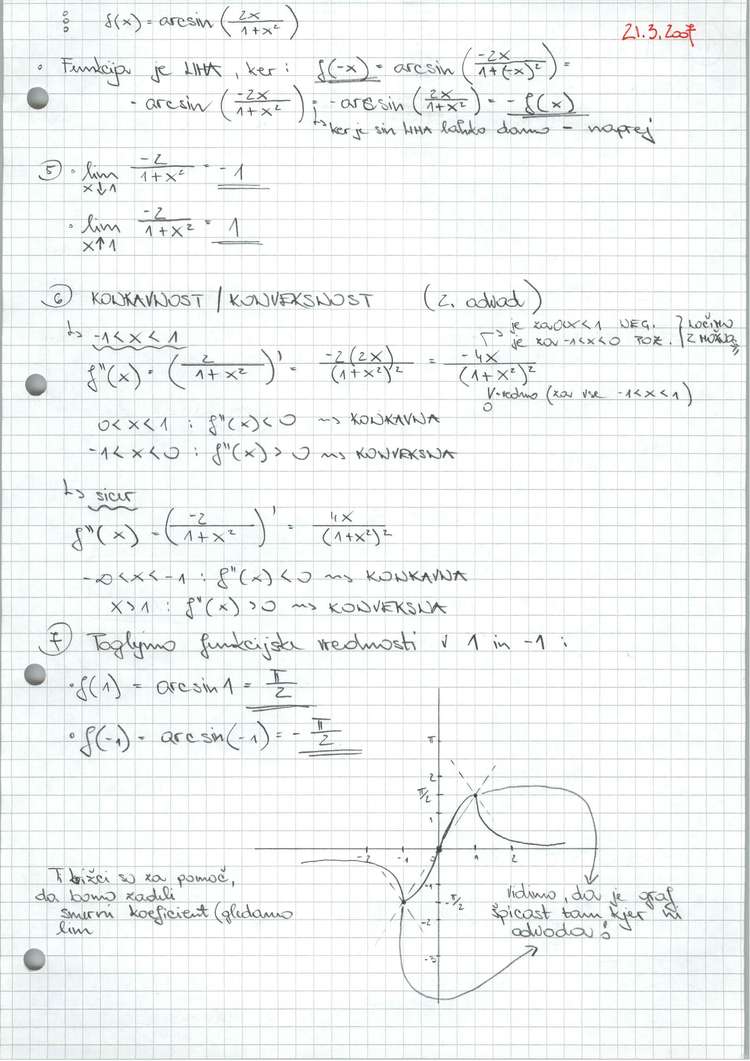 f(x) = arcsin (2x / 1+x²)
21.3.2007
• Funkcija je LIHA, ker: f(-x) = arcsin (-2x / 1+(-x)²) =
= arcsin (-2x / 1+x²) = -arcsin (2x / 1+x²) = -f(x)
↳ ker je sin LIHA lahko damo - naprej
⑤ • lim x↓1 -2 / 1+x² = -1
• lim x↑1 -2 / 1+x² = 1
⑥ KONKAVNOST / KONVEKSNOST (2. odvod)
↳ -1<x<1
je za 0<x<1 NEG.
je za -1<x<0 POZ.
LOČIMO 2 MOŽNO.
f''(x) = (2 / 1+x²)' = -2(2x) / (1+x²)² = -4x / (1+x²)²
vedno (za vse -1<x<1)
0
0<x<1 : f''(x)<0 ⇝ KONKAVNA
-1<x<0 : f''(x)>0 ⇝ KONVEKSNA
↳ sicer
f''(x) = (-2 / 1+x²)' = 4x / (1+x²)²
-∞<x<-1 : f''(x)<0 ⇝ KONKAVNA
x>1 : f''(x)>0 ⇝ KONVEKSNA
⑦ Poglejmo funkcijska vrednosti v 1 in -1 :
• f(1) = arcsin 1 = π/2
• f(-1) = arcsin(-1) = -π/2
π
2
π/2
1
-2 -1 0 1 2
-1
-π/2
-2
-3
Ti križci so za pomoč,
da bomo zadeli
smerni koeficient (gledamo
lim
vidimo, da je graf
špicast tam kjer ni
odvoda